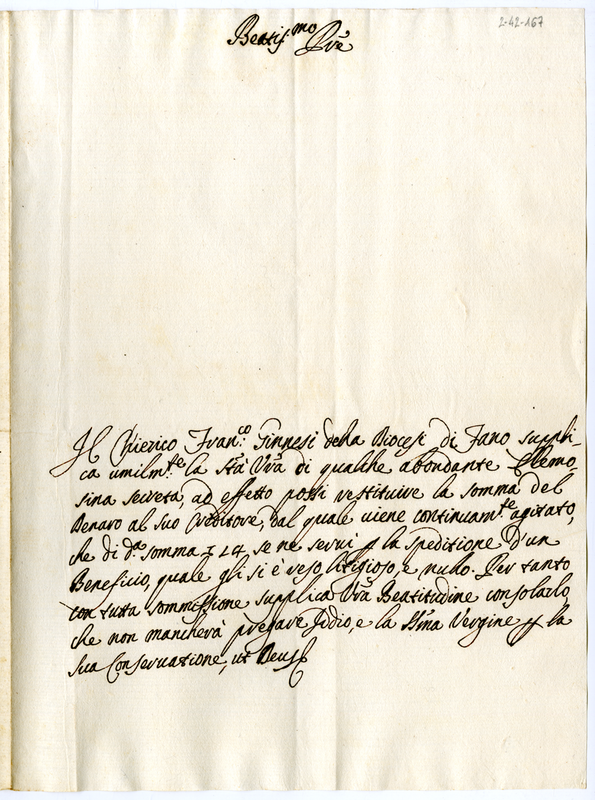 2-42-167
Beatis.mo Pr̃e
Il Chierico Fran.co Ginnesi della Diocesi di Fano suppli-
ca umilm.te la Stà Vr̃a di qualche abondante Elemo-
sina secreta, ad effetto possi restituire la somma del
Denaro al suo Creditore, dal quale viene continuam.te agitato,
che di d.a somma 24 se ne servì p la speditione d'un
Beneficio, quale gli si è reso litigioso, e nullo. Per tanto
con tutta sommissione supplica Vr̃a Beatitudine consolarlo,
che non mancherà pregare Iddio, e la SS.ma Vergine p la
sua Conservatione, ut Deus